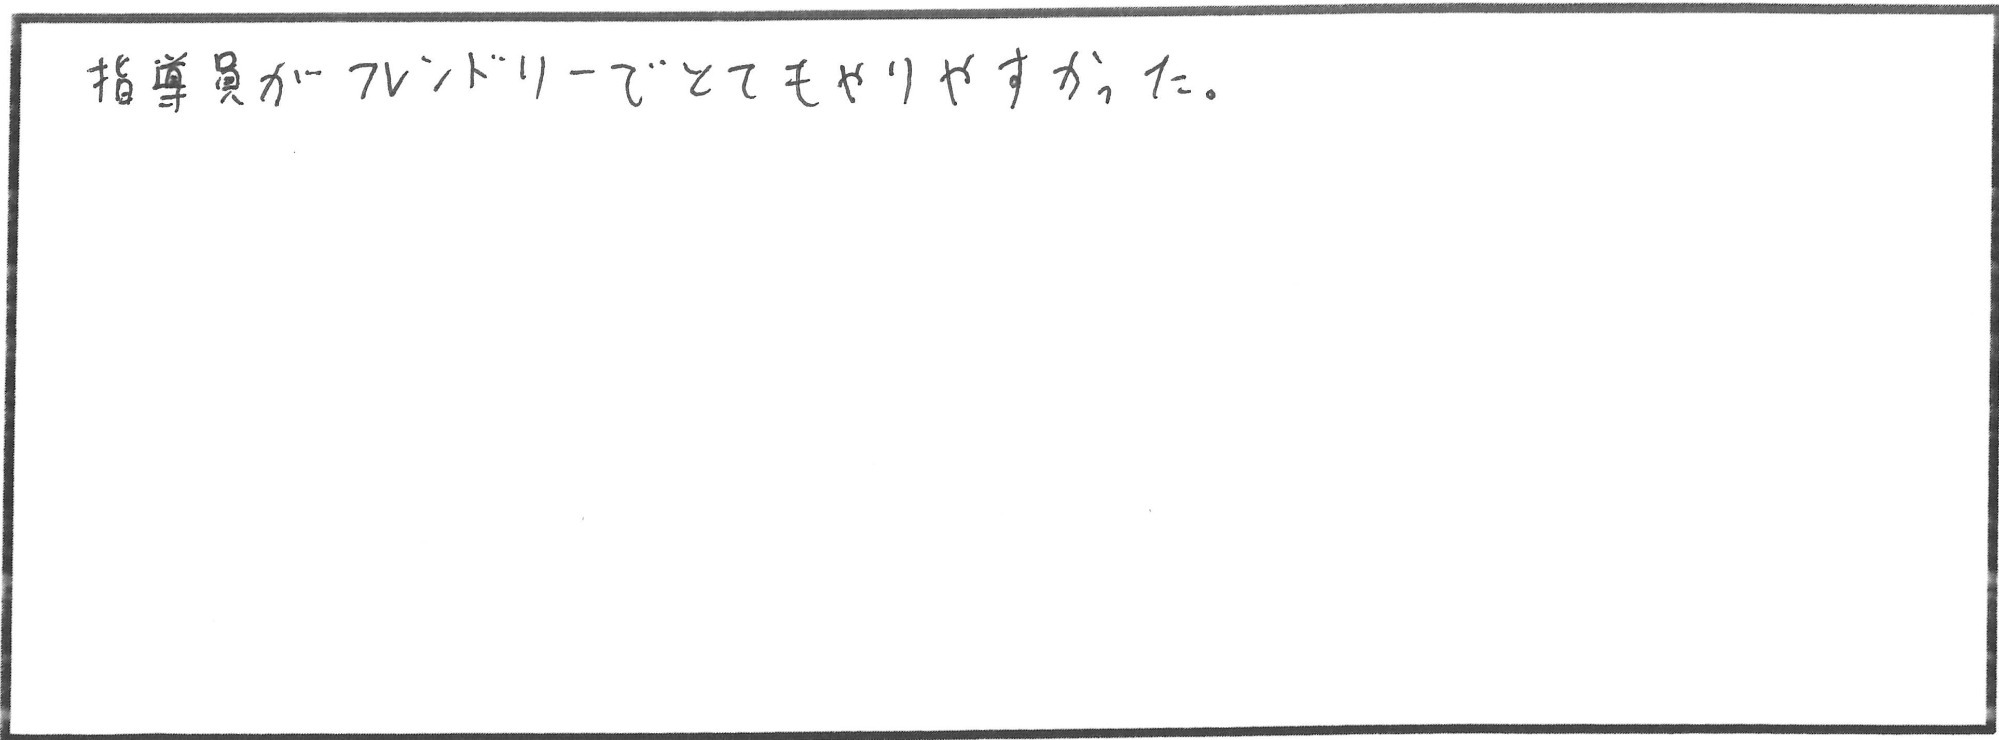 指導員がフレンドリーでとてもやりやすかった。